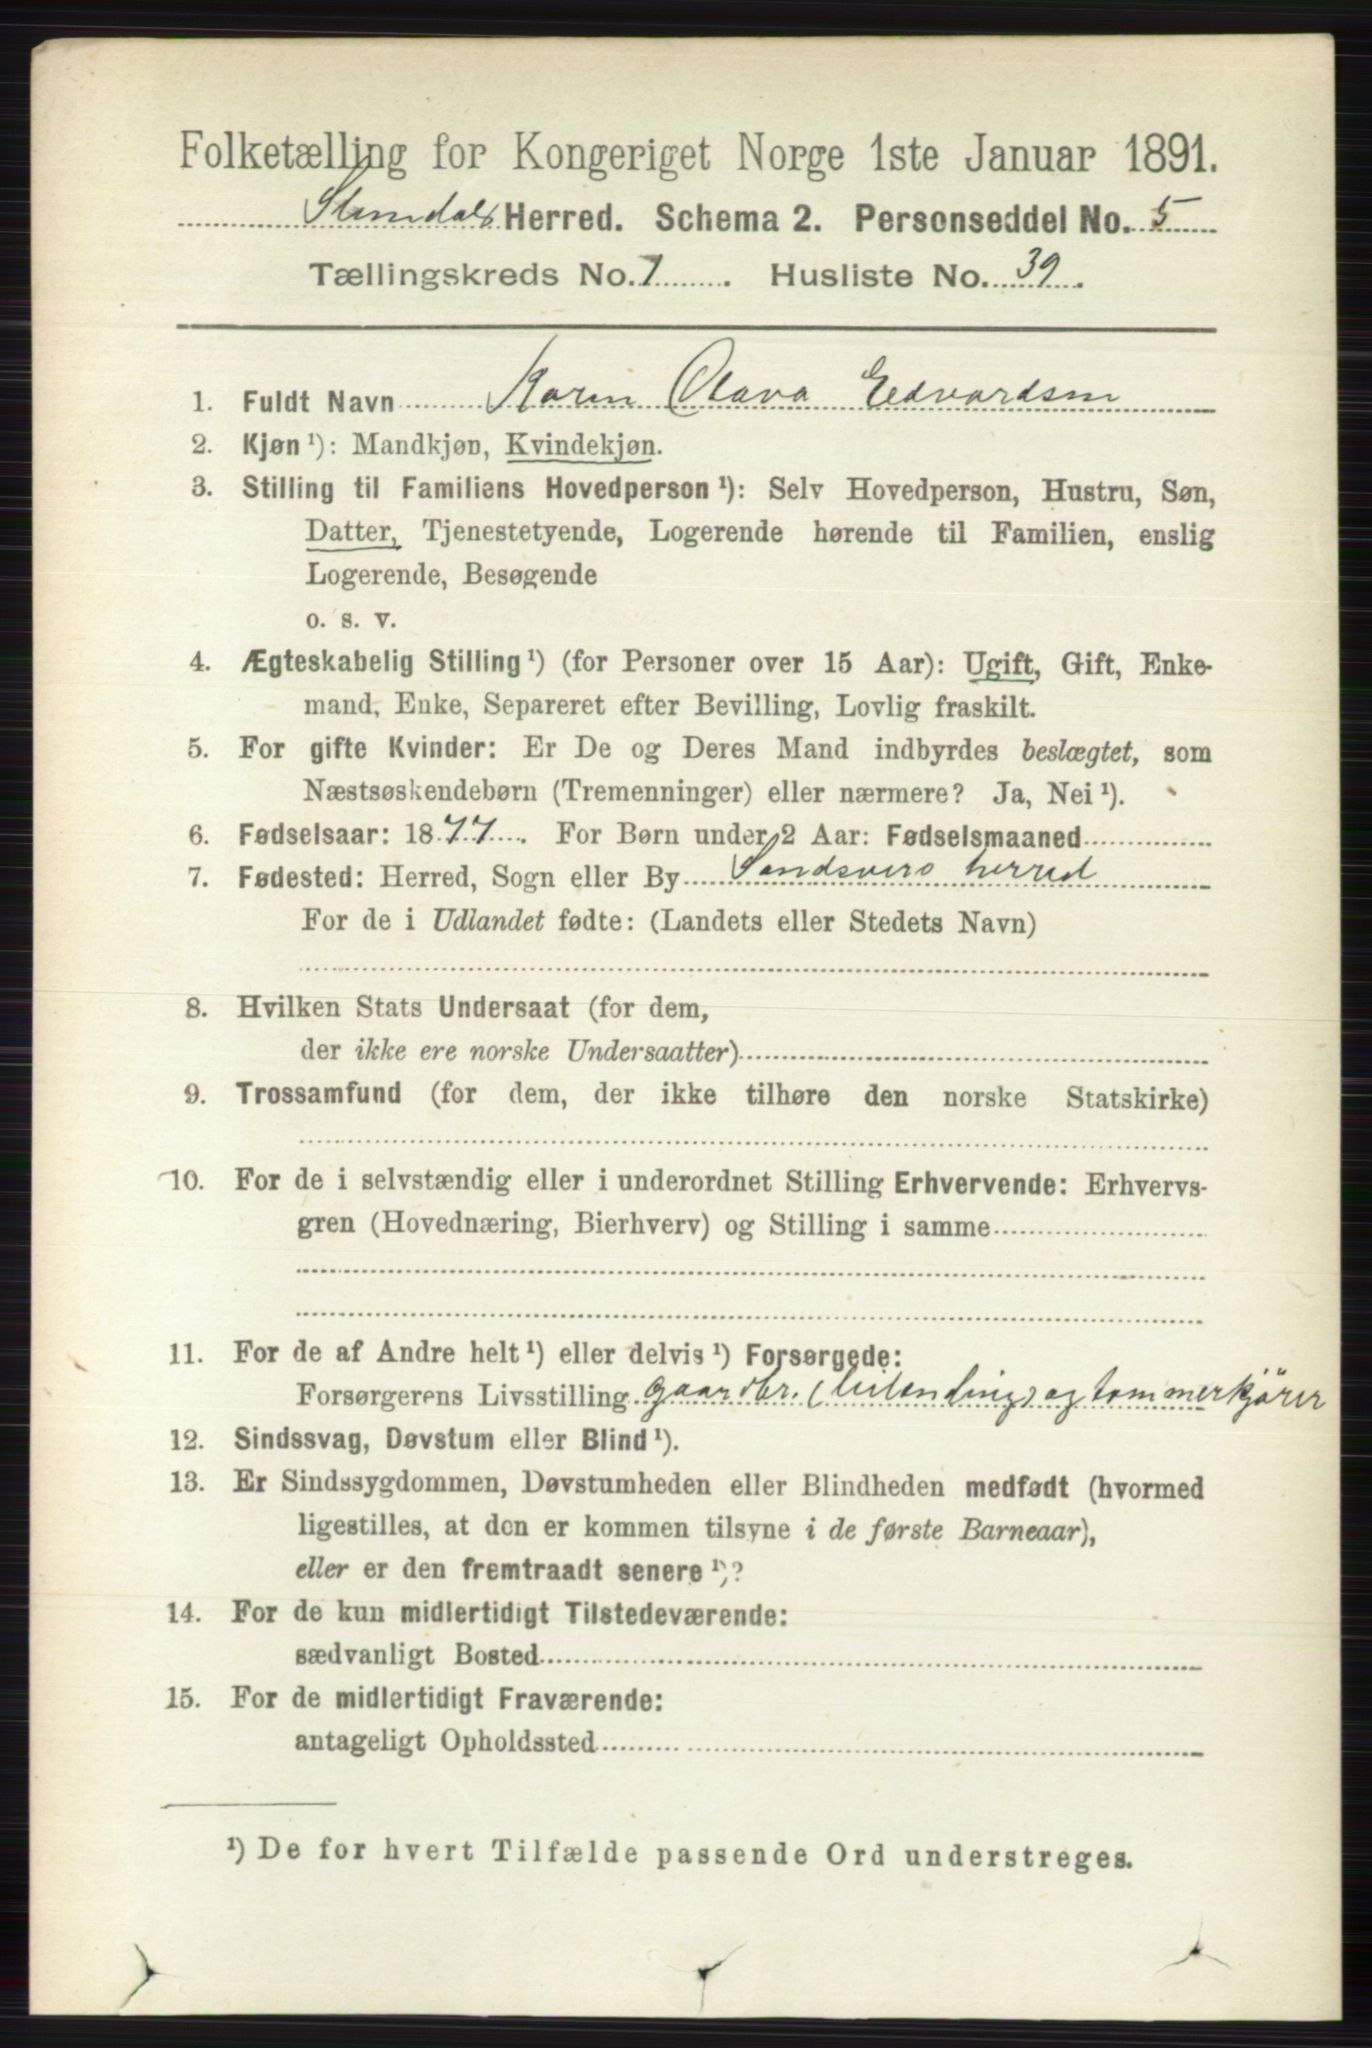 Folketælling for Kongeriget Norge 1ste Januar 1891.
Slemdals Herred. Schema 2. Personseddel No. 5
Tællingskreds No. 7. Husliste No. 39.
1. Fuldt Navn Karen Olava Edvardsen
2. Kjøn ¹): Mandkjøn, Kvindekjøn.
3. Stilling til Familiens Hovedperson ¹): Selv Hovedperson, Hustru, Søn,
Datter, Tjenestetyende, Logerende hørende til Familien, enslig
Logerende, Besøgende
o. s. v.
4. Ægteskabelig Stilling ¹) (for Personer over 15 Aar): Ugift, Gift, Enke-
mand, Enke, Separeret efter Bevilling, Lovlig fraskilt.
5. For gifte Kvinder: Er De og Deres Mand indbyrdes beslægtet, som
Næstsøskendebørn (Tremenninger) eller nærmere? Ja, Nei ¹).
6. Fødselsaar: 1877. For Børn under 2 Aar: Fødselsmaaned
7. Fødested: Herred, Sogn eller By Sandsvers herred
For de i Udlandet fødte: (Landets eller Stedets Navn)
8. Hvilken Stats Undersaat (for dem,
der ikke ere norske Undersaatter)
9. Trossamfund (for dem, der ikke tilhøre den norske Statskirke)
10. For de i selvstændig eller i underordnet Stilling Erhvervende: Erhvervs-
gren (Hovednæring, Bierhverv) og Stilling i samme
11. For de af Andre helt ¹) eller delvis ¹) Forsørgede:
Forsørgerens Livsstilling gaardbr. (leilending) og tømmerkjører
12. Sindssvag, Døvstum eller Blind ¹).
13. Er Sindssygdommen, Døvstumheden eller Blindheden medfødt (hvormed
ligestilles, at den er kommen tilsyne i de første Barneaar),
eller er den fremtraadt senere ¹)?
14. For de kun midlertidigt Tilstedeværende:
sædvanligt Bosted
15. For de midlertidigt Fraværende:
antageligt Opholdssted
¹) De for hvert Tilfælde passende Ord understreges.